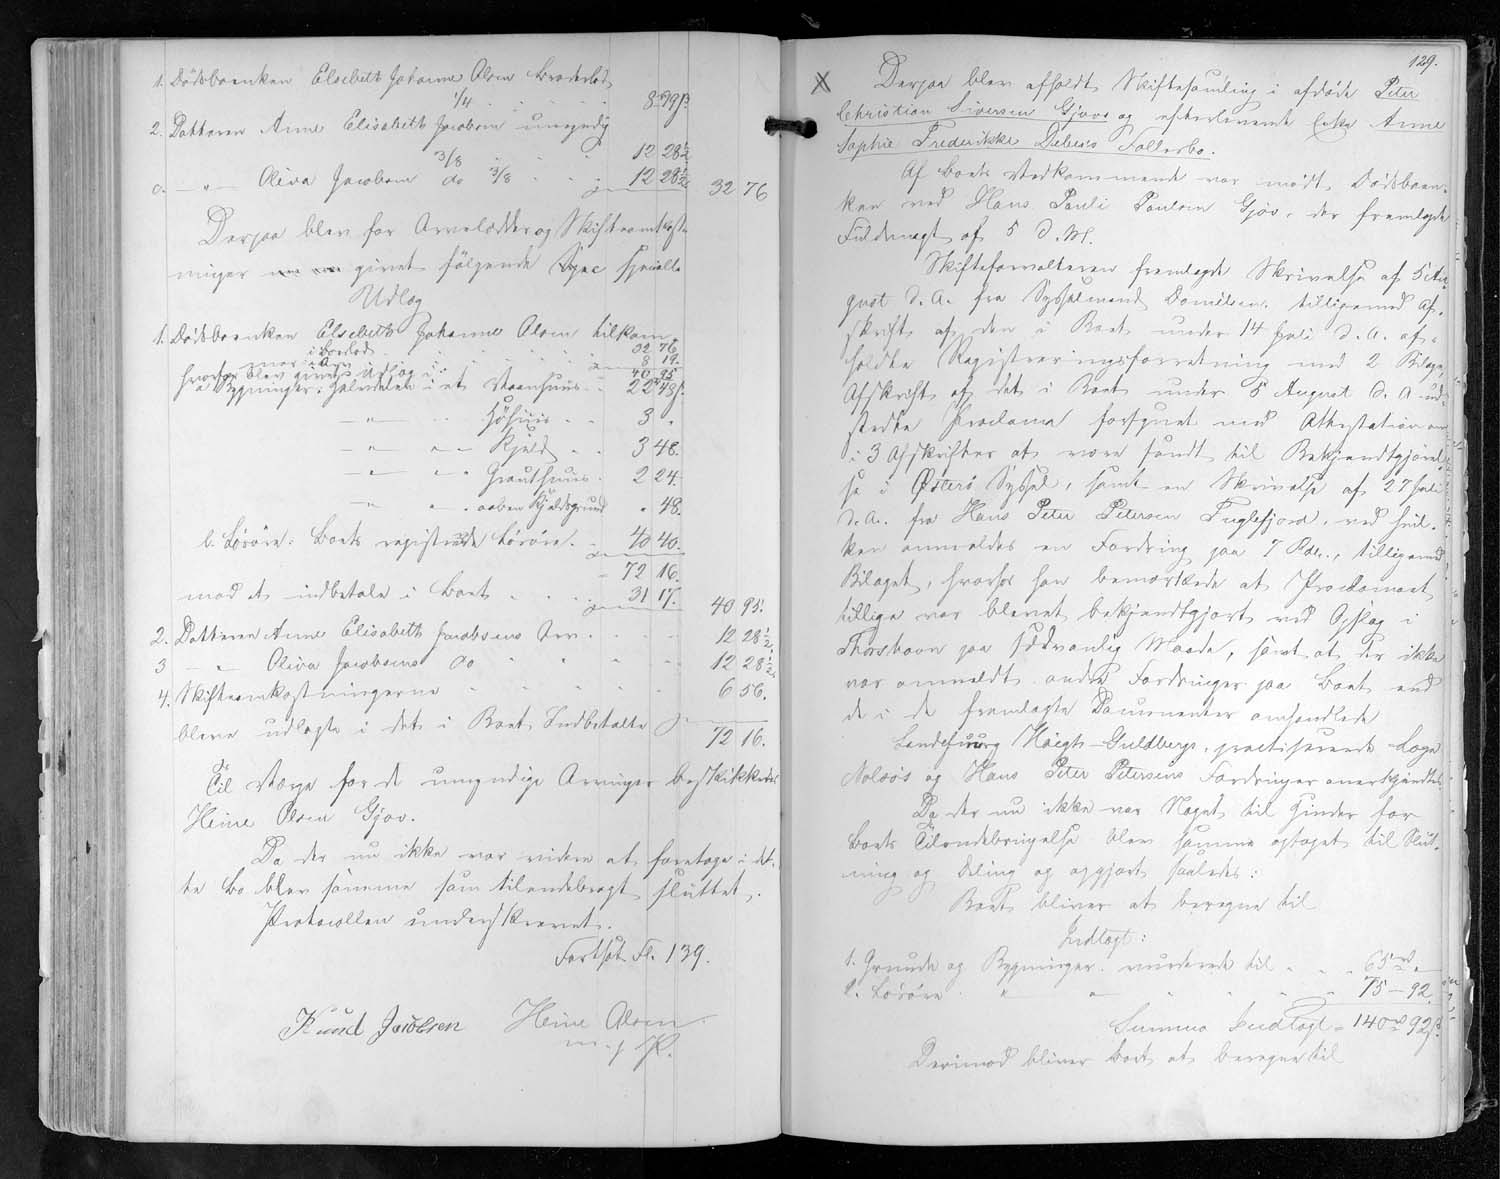 1. Dødsboenken Elsebeth Johanne Olsen Broderlod
1/4 . . . . 8 19 β
2. Datteren Anne Elisabeth Jacobsen umyndig
3/8 . . . 12 28½
c. — " — Oliva Jacobsen do 3/8 . . 12 28½ 32 76
Derpaa blev for Arvelodder og Skifteomkost-
ninger givet følgende specielle
Udlæg
1. Dødsboenken Elsebeth Johanne Olsen tilkom
i Boeslod . . . 32 76
i Arv . . . 8 19.
hvorfor blev givet Udlæg i: 40 95
a Bygninger: Halvdelen i et Vaanhuus . . 22 48 β.
— " — — Høhuus . . 3 "
— " — " — Kjeld . . 3 48.
— " — " — Grauthuus . 2 24.
— " — " — aaben Kjeldsgrund " 48.
b. Løsøre: Boets registrerede Løsøre. — 40 40.
72 16.
mod at indbetale i Boet . . . 31 17. 40 95.
2. Datteren Anne Elisabeth Jacobsens Arv . . . 12 28½
3 — " — Oliva Jacobsens do " " " " 12 28½
4. Skifteomkostningerne " " " " 6 56.
bleve udlagte i det i Boet Indbetalte 72 16.
Til Værge for de umyndige Arvinger beskikkedes
Heine Olsen Gjov.
Da der nu ikke var videre at foretage i det-
te Bo blev samme som tilendebragt sluttet.
Protocollen underskrevet.
Fortsat Fl. 139.
Knud Jacobsen Heine Olsen
m. f. P.
129.
X Derpaa blev afholdt Skiftesamling i afdøde Peter
Christian Siversen Gjovs og efterlevende Enke Anne
Sophie Frederikke Fællesbo.
Af Boets Vedkommende var mødt Dødsboen-
ken ved Hans Pauli Poulsen Gjov, der fremlagde
Fuldmagt af 5 d. M.
Skifteforvalteren fremlagde Skrivelse af 5 Au-
gust d. A. fra Sysselmand Danielsen, tilligemed Af-
skrift af den i Boet under 14 Juli d. A. af-
holdte Registreringsforretning med 2 Bilage,
Afskrift af det i Boet under 5 August d. A. ud-
stedte Proclama forsynet med Attestation om
i 3 Afskrifter at være sendt til Bekjendtgjørel-
se i Østerø Syssel, samt en Skrivelse af 27 Juli
d. A. fra Hans Peter Petersen Fuglefjord, ved hvil-
ken anmeldes en Fordring paa 7 Rdr., tilligemed
Bilaget, hvorfor han bemærkede at Proclamaet
tillige var blevet bekjendtgjort ved Opslag i
Thorshavn paa sædvanlig Maade, samt at der ikke
var anmeldt andre Fordringer paa Boet end
de i de fremlagte Documenter omhandlede
Landchirurg Høegh-Guldbergs, practiserende Læge
Nolsøs og Hans Peter Petersens Fordringer anerkjendtes.
Da der nu ikke var Noget til Hinder for
Boets Tilendebringelse blev samme optaget til Slut-
ning og Deling og opgjort saaledes:
Boet bliver at beregne til
Indtægt:
1. Grunde og Bygninger vurderede til . . . 65 rd. "
2. Løsøre " " " " " 75 — 92.
Summa Indtægt = 140 rd 92 β.
Derimod bliver Boet at beregne til